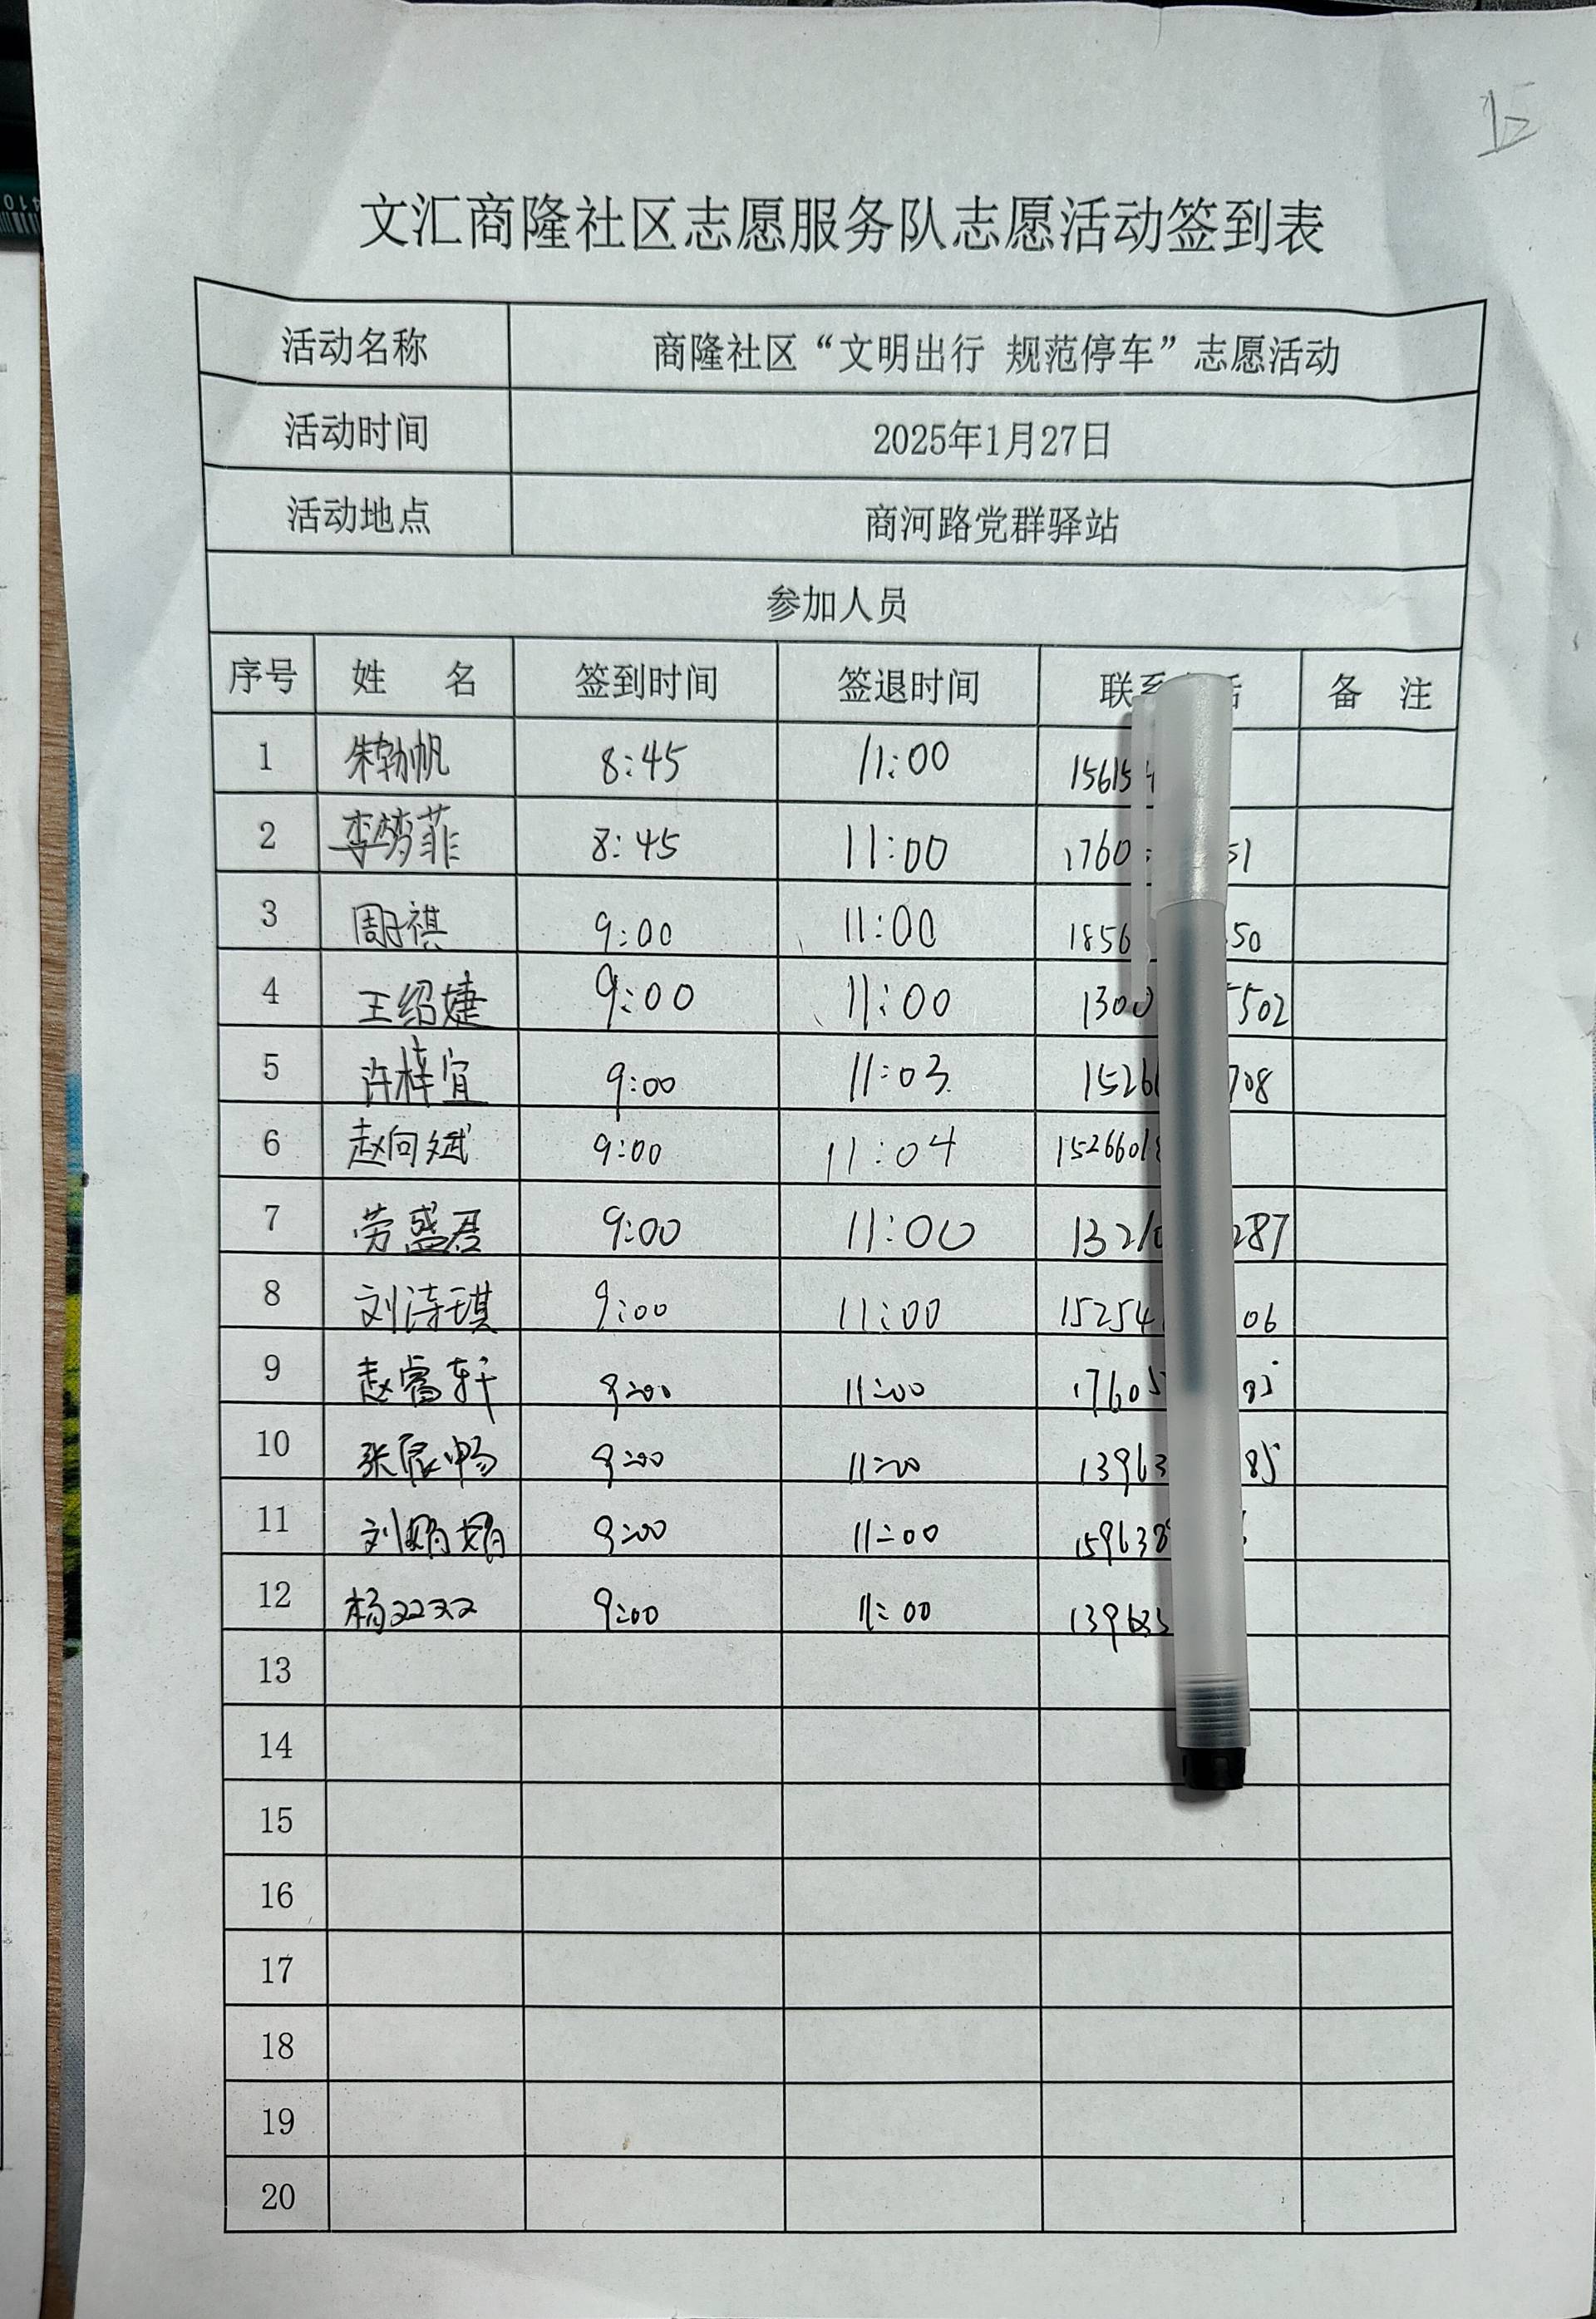 文汇商隆社区志愿服务队志愿活动签到表
活动名称 商隆社区“文明出行 规范停车”志愿活动
活动时间 2025年1月27日
活动地点 商河路党群驿站
参加人员
序号 姓 名 签到时间 签退时间 联系 备 注
1 8:45 11:00 15615
2 李梦菲 8:45 11:00 1760 51
3 周子祺 9:00 11:00 1856 50
4 王绍婕 9:00 11:00 1300 5502
5 许梓宜 9:00 11:03 1526 708
6 赵向斌 9:00 11:04 1526601
7 劳盛君 9:00 11:00 13210 287
8 刘诗琪 9:00 11:00 15254 06
9 赵睿轩 9:00 11:00 1760 85
10 张宸畅 9:00 11:00 13963 85
11 刘娟娟 9:00 11:00 159638
12 杨双双 9:00 11:00
13
14
15
16
17
18
19
20